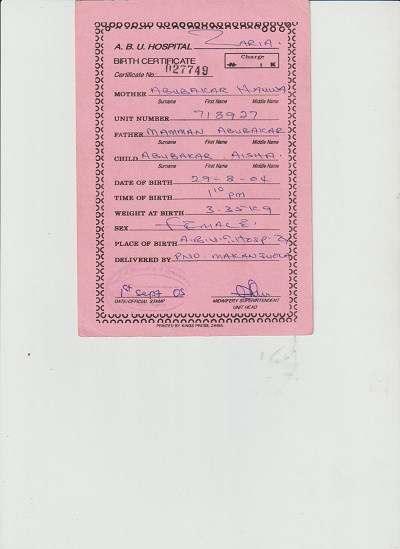 A. B. U. HOSPITAL ZARIA.
BIRTH CERTIFICATE
Charge
₦ 1 K
Certificate No: 027749
MOTHER ABUBAKAR HAUWA
Surname First Name Middle Name
UNIT NUMBER 718927
FATHER MAMMAN ABUBAKAR
Surname First Name Middle Name
CHILD ABUBAKAR AISHA.
Surname First Name Middle Name
DATE OF BIRTH 29-8-04
TIME OF BIRTH 1 10 pm
WEIGHT AT BIRTH 3.35kg
SEX FEMALE
PLACE OF BIRTH A.B.U.T. Hosp. Z
DELIVERED BY PNO. MAKANJUOLA
1st Sept 05
DATE/OFFICIAL STAMP
MIDWIFERY SUPERINTENDENT
UNIT HEAD
PRINTED BY KINGS PRESS, ZARIA.